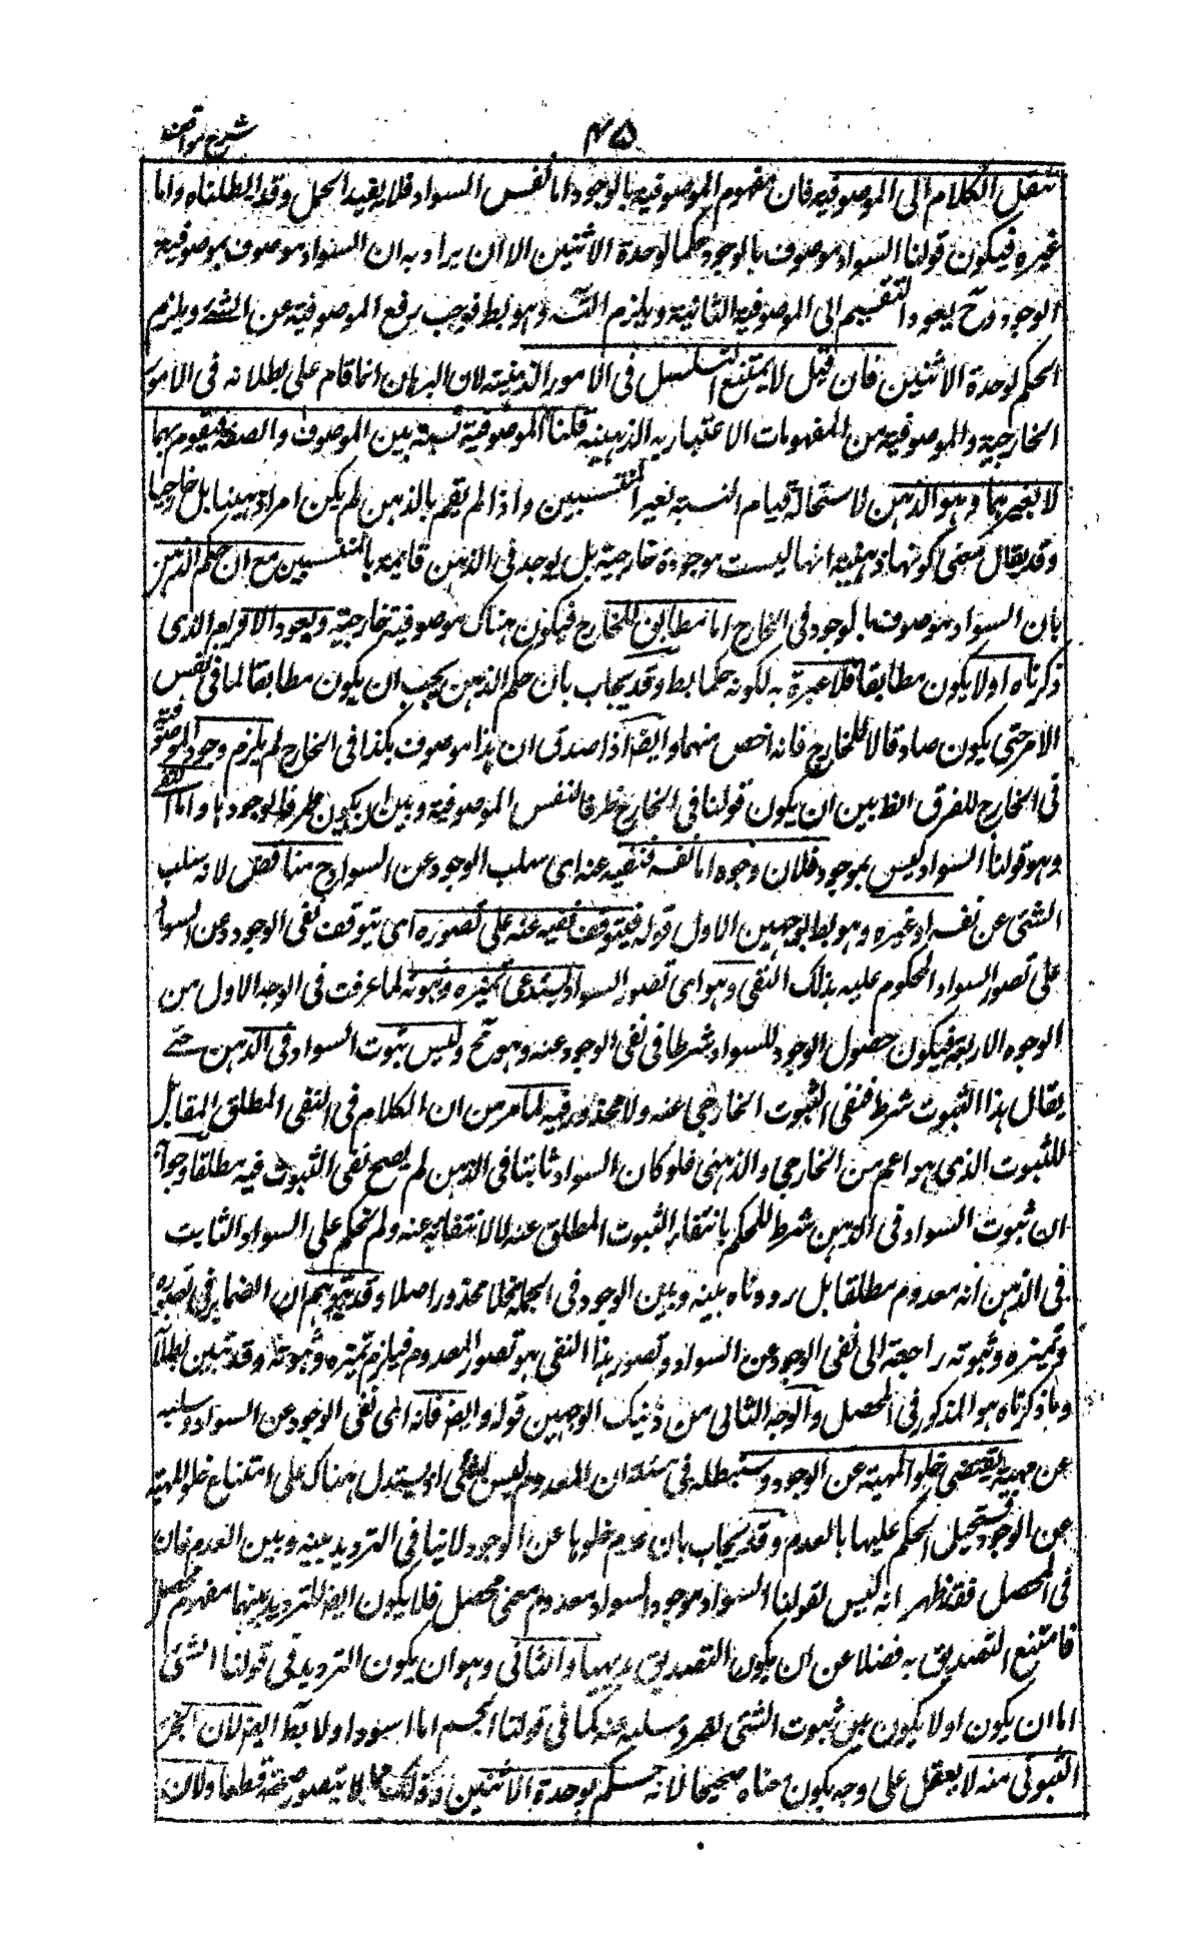 شرح مواقف
٤٥
ننقل الكلام الى الموصوفية فان مفهوم الموصوفية بالوجود اما نفس السواد فلا يفيد الحمل وقد ابطلناه واما
غيره فيكون قولنا السواد موصوف بالوجود حكما لوحدة الاثنين الا ان يراد به ان السواد موصوف بموصوفية
الوجود وح يعود التقسيم الى الموصوفية الثانية ويلزم التسـ وهو بط فوجب رفع الموصوفية عن الشئ ويلزم
الحكم لوحدة الاثنين فان قيل لا يمتنع التسلسل فى الامور الذهنية لان البرهان انما قام على بطلانه فى الامور
الخارجية والموصوفية من المفهومات الاعتبارية الذهنية قلنا الموصوفية نسبة بين الموصوف والصفة فيقوم بهما
لا بغيرهما وهو الذهن لاستحالة قيام النسبة بغير المنتسبين واذا لم يقم بالذهن لم يكن امرا ذهنيا بل خارجيا
وقد يقال معنى كونها ذهنية انها ليست موجودة خارجية بل يوجد فى الذهن قايمة بالمنتسبين مع ان حكم الذهن
بان السواد موصوف بالوجود فى الخارج اما مطابق للخارج فيكون هناك موصوفية خارجية ويعود الالزام الذى
ذكرناه او لا يكون مطابقا فلا عبرة به لكونه حكما بط وقد يجاب بان حكم الذهن يجب ان يكون مطابقا لما فى نفس
الامر حتى يكون صادقا لا للخارج فانه اخص منهما وايضا اذا صدق ان هذا موصوف بكذا فى الخارج لم يلزم وجود الموصوفية
فى الخارج للفرق الظ بين ان يكون قولنا فى الخارج ظرفا لنفس الموصوفية وبين ان يكون ظرفا لوجودها واما النفى
وهو قولنا السواد ليس بموجود فلان وجوده اما نفسه فنفيه عنه اى سلب الوجود عن السواد ح مناقض لانه سلب
الشئ عن نفسه او غيره وهو بط لوجهين الاول قوله فيتوقف نفيه عنه على تصوره اى يتوقف نفى الوجود عن السواد
على تصور السواد المحكوم عليه بذلك النفى وهو اى تصور السواد يستدعى تميزه وثبوته لما عرفت فى الوجه الاول من
الوجوه الاربعة فيكون حصول الوجود للسواد شرطا فى نفى الوجود عنه وهو مح وليس ثبوت السواد فى الذهن حتى
يقال هذا الثبوت شرط فنفى الثبوت الخارجى عنه ولا محذور فيه لما مر من ان الكلام فى النفى المطلق المقابل
للثبوت الذى هو اعم من الخارجى والذهنى فلو كان السواد ثابتا فى الذهن لم يصح نفى الثبوت فيه مطلقا وجوابه
ان ثبوت السواد فى الذهن شرط للحكم بانتفاء الثبوت المطلق عنه لا لانتفائه عنه ولم نحكم على السواد الثابت
فى الذهن انه معدوم مطلقا بل رددناه بينه وبين الوجود فى الجملة فلا محذور اصلا وقد يتوهم ان الضماير فى تصوره
وتميزه وثبوته راجعة الى نفى الوجود عن السواد وتصور هذا النفى هو تصور المعدوم فيلزم تميزه وثبوته وقد تبين بطلانه
وما ذكرناه هو المذكور فى المحصل والوجه الثانى من ذينك الوجهين قوله وايضا فانه اى نفى الوجود عن السواد وسلبه
عن مهيته يقتضى خلو المهية عن الوجود وسنبطله فى مسئلة ان المعدوم ليس بشئ اذ يستدل هناك على امتناع خلو المهية
عن الوجود فيستحيل الحكم عليها بالعدم وقد يجاب بان عدم خلوها عن الوجود لا ينافى الترديد بينه وبين العدم فان
فى المحصل فقد ظهر انه ليس لقولنا السواد موجود السواد معدوم معنى محصل فلا يكون ايضا للترديد بينهما مفهوم محصل
فامتنع التصديق به فضلا عن ان يكون التصديق بديهيا والثانى وهو ان يكون الترديد فى قولنا الشئ
اما ان يكون او لا يكون بين ثبوت الشئ لغيره وسلبه عنه كما فى قولنا الجسم اما اسود او لا بط ايضا لان الجزء
الثبوتى منه لا يعقل على وجه يكون معناه صحيحا لانه حكم بوحدة الاثنين وذلك مما لا يتصور صحته قطعا ولان